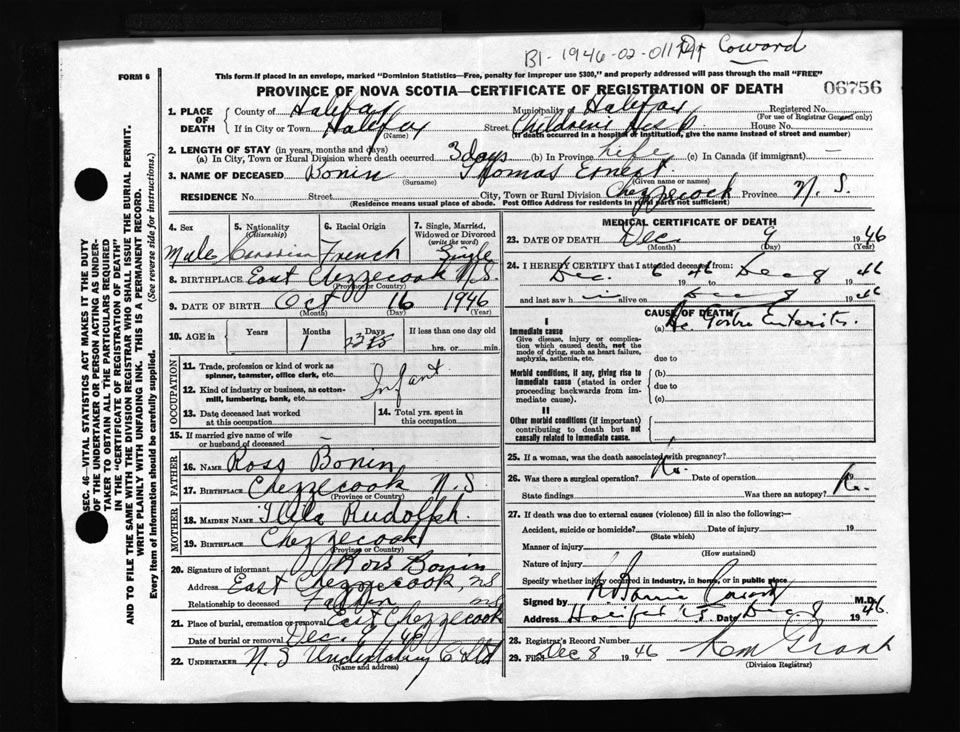 B1-1946-02-011 Dr Coward
FORM 6
This form if placed in an envelope, marked "Dominion Statistics—Free, penalty for improper use $300," and properly addressed will pass through the mail "FREE"
PROVINCE OF NOVA SCOTIA—CERTIFICATE OF REGISTRATION OF DEATH
06756
1. PLACE OF DEATH
County of Halifax Municipality of Halifax Registered No.
(For use of Registrar General only)
If in City or Town Halifax Street Children's Hosp. House No.
(Name) (If death occurred in a hospital or institution, give the name instead of street and number)
2. LENGTH OF STAY (in years, months and days)
(a) In City, Town or Rural Division where death occurred 3 days (b) In Province Life (c) In Canada (if immigrant) —
3. NAME OF DECEASED Bonin Thomas Ernest
(Surname) (Given name or names)
RESIDENCE No. Street City, Town or Rural Division Chezzecook Province N. S.
(Residence means usual place of abode. Post Office Address for residents in rural parts not sufficient)
4. Sex
Male
5. Nationality (Citizenship)
Canadian
6. Racial Origin
French
7. Single, Married, Widowed or Divorced (write the word)
Single
8. BIRTHPLACE East Chezzecook N.S.
(Province or Country)
9. DATE OF BIRTH Oct 16 1946
(Month) (Day) (Year)
10. AGE in Years Months Days If less than one day old
1 23
hrs. or min.
OCCUPATION
11. Trade, profession or kind of work as spinner, teamster, office clerk, etc.
Infant
12. Kind of industry or business, as cotton-mill, lumbering, bank, etc.
13. Date deceased last worked at this occupation
14. Total yrs. spent in this occupation
15. If married give name of wife or husband of deceased —
FATHER
16. NAME Ross Bonin
17. BIRTHPLACE Chezzecook N.S
(Province or Country)
MOTHER
18. MAIDEN NAME Rudolph
19. BIRTHPLACE Chezzecook
(Province or Country)
20. Signature of informant Ross Bonin
Address East Chezzecook, NS
Relationship to deceased Father
21. Place of burial, cremation or removal East Chezzecook NS
Date of burial or removal Dec. 9/46
22. UNDERTAKER N.S Undertaking Co Ltd
(Name and address)
MEDICAL CERTIFICATE OF DEATH
23. DATE OF DEATH Dec. 9 1946
(Month) (Day) (Year)
24. I HEREBY CERTIFY that I attended deceased from:
Dec. 6 46 to Dec 8 1946
and last saw him alive on Dec 8 1946
CAUSE OF DEATH
I
Immediate cause
Give disease, injury or complication which caused death, not the mode of dying, such as heart failure, asphyxia, asthenia, etc.
(a) Ac Gastro Enteritis.
due to
Morbid conditions, if any, giving rise to immediate cause (stated in order proceeding backwards from immediate cause).
(b)
due to
(c)
II
Other morbid conditions (if important) contributing to death but not causally related to immediate cause.
25. If a woman, was the death associated with pregnancy?
26. Was there a surgical operation? No. Date of operation
State findings Was there an autopsy? No.
27. If death was due to external causes (violence) fill in also the following:—
Accident, suicide or homicide? Date of injury 19
(State which)
Manner of injury
(How sustained)
Nature of injury
Specify whether injury occurred in industry, in home, or in public place
Signed by Coward M.D.
Address Halifax Date Dec 8 1946.
28. Registrar's Record Number
29. Filed Dec 8 1946 Grant
(Division Registrar)
SEC. 46—VITAL STATISTICS ACT MAKES IT THE DUTY
OF THE UNDERTAKER OR PERSON ACTING AS UNDER-
TAKER TO OBTAIN ALL THE PARTICULARS REQUIRED
IN THE "CERTIFICATE OF REGISTRATION OF DEATH"
AND TO FILE THE SAME WITH THE DIVISION REGISTRAR WHO SHALL ISSUE THE BURIAL PERMIT.
WRITE PLAINLY WITH UNFADING INK. THIS IS A PERMANENT RECORD.
Every item of information should be carefully supplied. (See reverse side for instructions.)